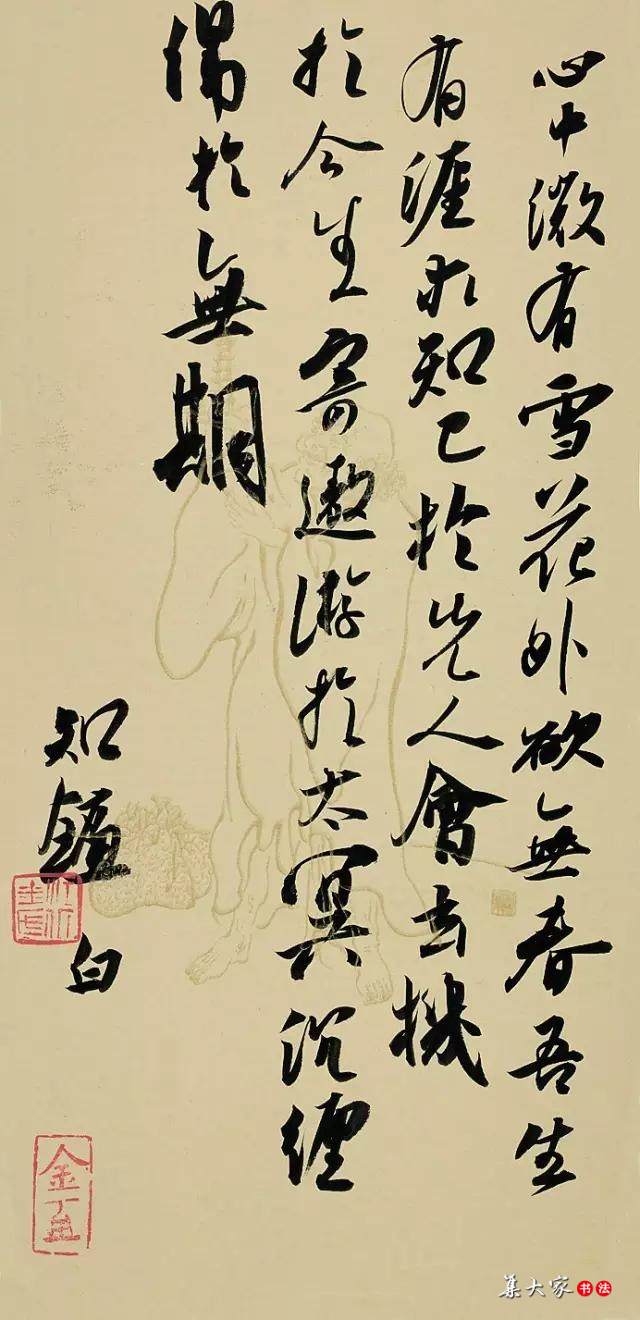 心中微有雪花外欲無春吾生
有涯求知己於先人會玄機
於今生寄遨游於太冥沉纏
惕於無期
知鐳
白
金丁五
集大家书法